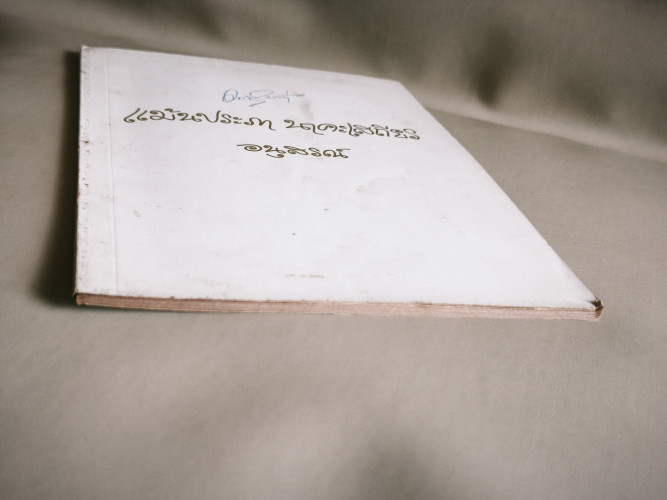 แม้นประภา นาคะเสถียร
อนุสรณ์